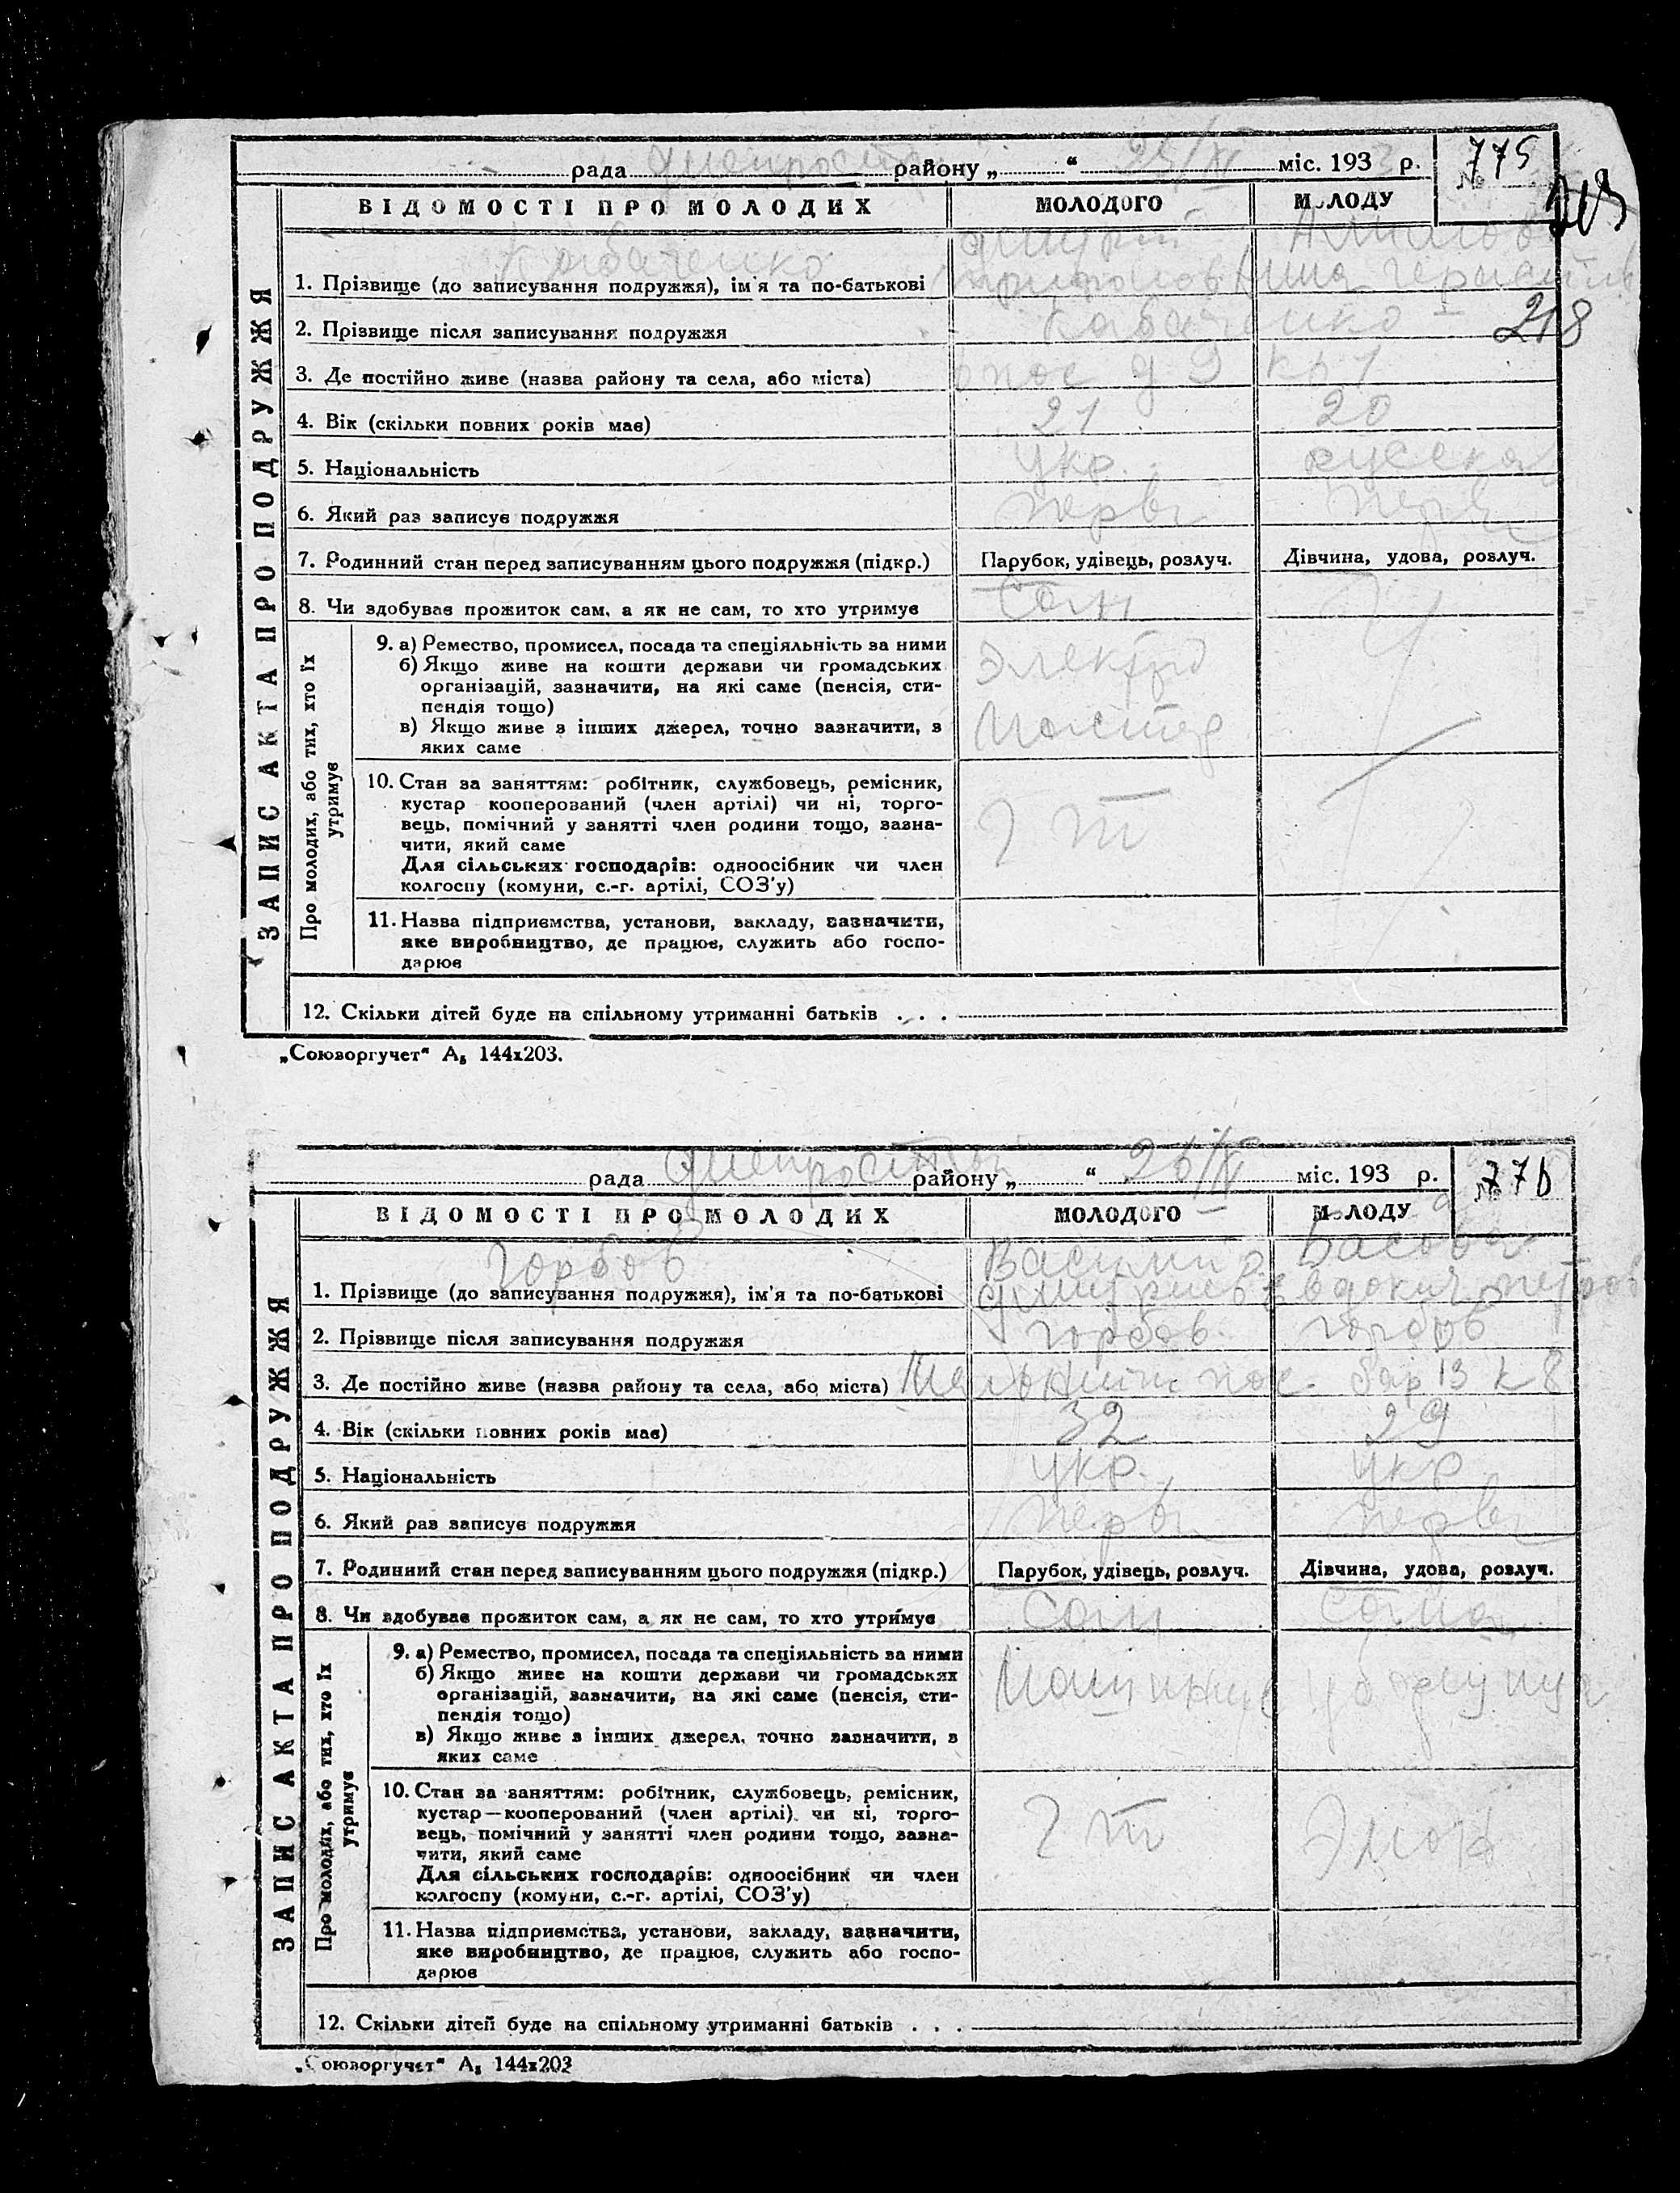 рада Днепрострой району „ “ 25/XI міс. 193 р.
775
№
ВІДОМОСТІ ПРО МОЛОДИХ МОЛОДОГО МОЛОДУ
218
ЗАПИС АКТА ПРО ПОДРУЖЖЯ
Кабаченко
1. Прізвище (до записування подружжя), ім'я та по-батькові
2. Прізвище після записування подружжя Кабаченко
218
3. Де постійно живе (назва району та села, або міста) пос д 9 кв 1
4. Вік (скільки повних років має) 21 20
5. Національність Укр. русская
6. Який раз записує подружжя перв перв
7. Родинний стан перед записуванням цього подружжя (підкр.) Парубок, удівець, розлуч. Дівчина, удова, розлуч.
8. Чи здобував прожиток сам, а як не сам, то хто утримує Сам
Про молодих, або тих, хто їх утримує
9. а) Ремество, промисел, посада та спеціяльність за ними
б) Якщо живе на кошти держави чи громадських
організацій, зазначити, на які саме (пенсія, сти-
пендія тощо)
в) Якщо живе з інших джерел, точно зазначити, з
яких саме
Электро
10. Стан за заняттям: робітник, службовець, ремісник,
кустар кооперований (член артілі) чи ні, торго-
вець, помічний у занятті член родини тощо, зазна-
чити, який саме
Для сільських господарів: одноосібник чи член
колгоспу (комуни, с.-г. артілі, СОЗ'у)
11. Назва підприємства, установи, закладу, зазначити,
яке виробництво, де працює, служить або госпо-
дарює
12. Скільки дітей буде на спільному утриманні батьків . . .
„Союзоргучет“ А₅ 144x203.
рада Днепрострой району „ “ 26/XI міс. 193 р.
776
№
ВІДОМОСТІ ПРО МОЛОДИХ МОЛОДОГО МОЛОДУ
ЗАПИС АКТА ПРО ПОДРУЖЖЯ
Горбов Василий Басова
1. Прізвище (до записування подружжя), ім'я та по-батькові Дмитриев Евдокия Петров
2. Прізвище після записування подружжя Горбов Горбов
3. Де постійно живе (назва району та села, або міста) пос. бар 13 к 8
4. Вік (скільки повних років має) 32 29
5. Національність Укр. Укр
6. Який раз записує подружжя перв перв
7. Родинний стан перед записуванням цього подружжя (підкр.) Парубок, удівець, розлуч. Дівчина, удова, розлуч.
8. Чи здобував прожиток сам, а як не сам, то хто утримує Сам Сама
Про молодих, або тих, хто їх утримує
9. а) Ремество, промисел, посада та спеціяльність за ними
б) Якщо живе на кошти держави чи громадських
організацій, зазначити, на які саме (пенсія, сти-
пендія тощо)
в) Якщо живе з інших джерел, точно зазначити, з
яких саме
Машинист
10. Стан за заняттям: робітник, службовець, ремісник,
кустар—кооперований (член артілі) чи ні, торго-
вець, помічний у занятті член родини тощо, зазна-
чити, який саме
Для сільських господарів: одноосібник чи член
колгоспу (комуни, с.-г. артілі, СОЗ'у)
11. Назва підприємства, установи, закладу, зазначити,
яке виробництво, де працює, служить або госпо-
дарює
12. Скільки дітей буде на спільному утриманні батьків . . .
„Союзоргучет“ А₅ 144x203